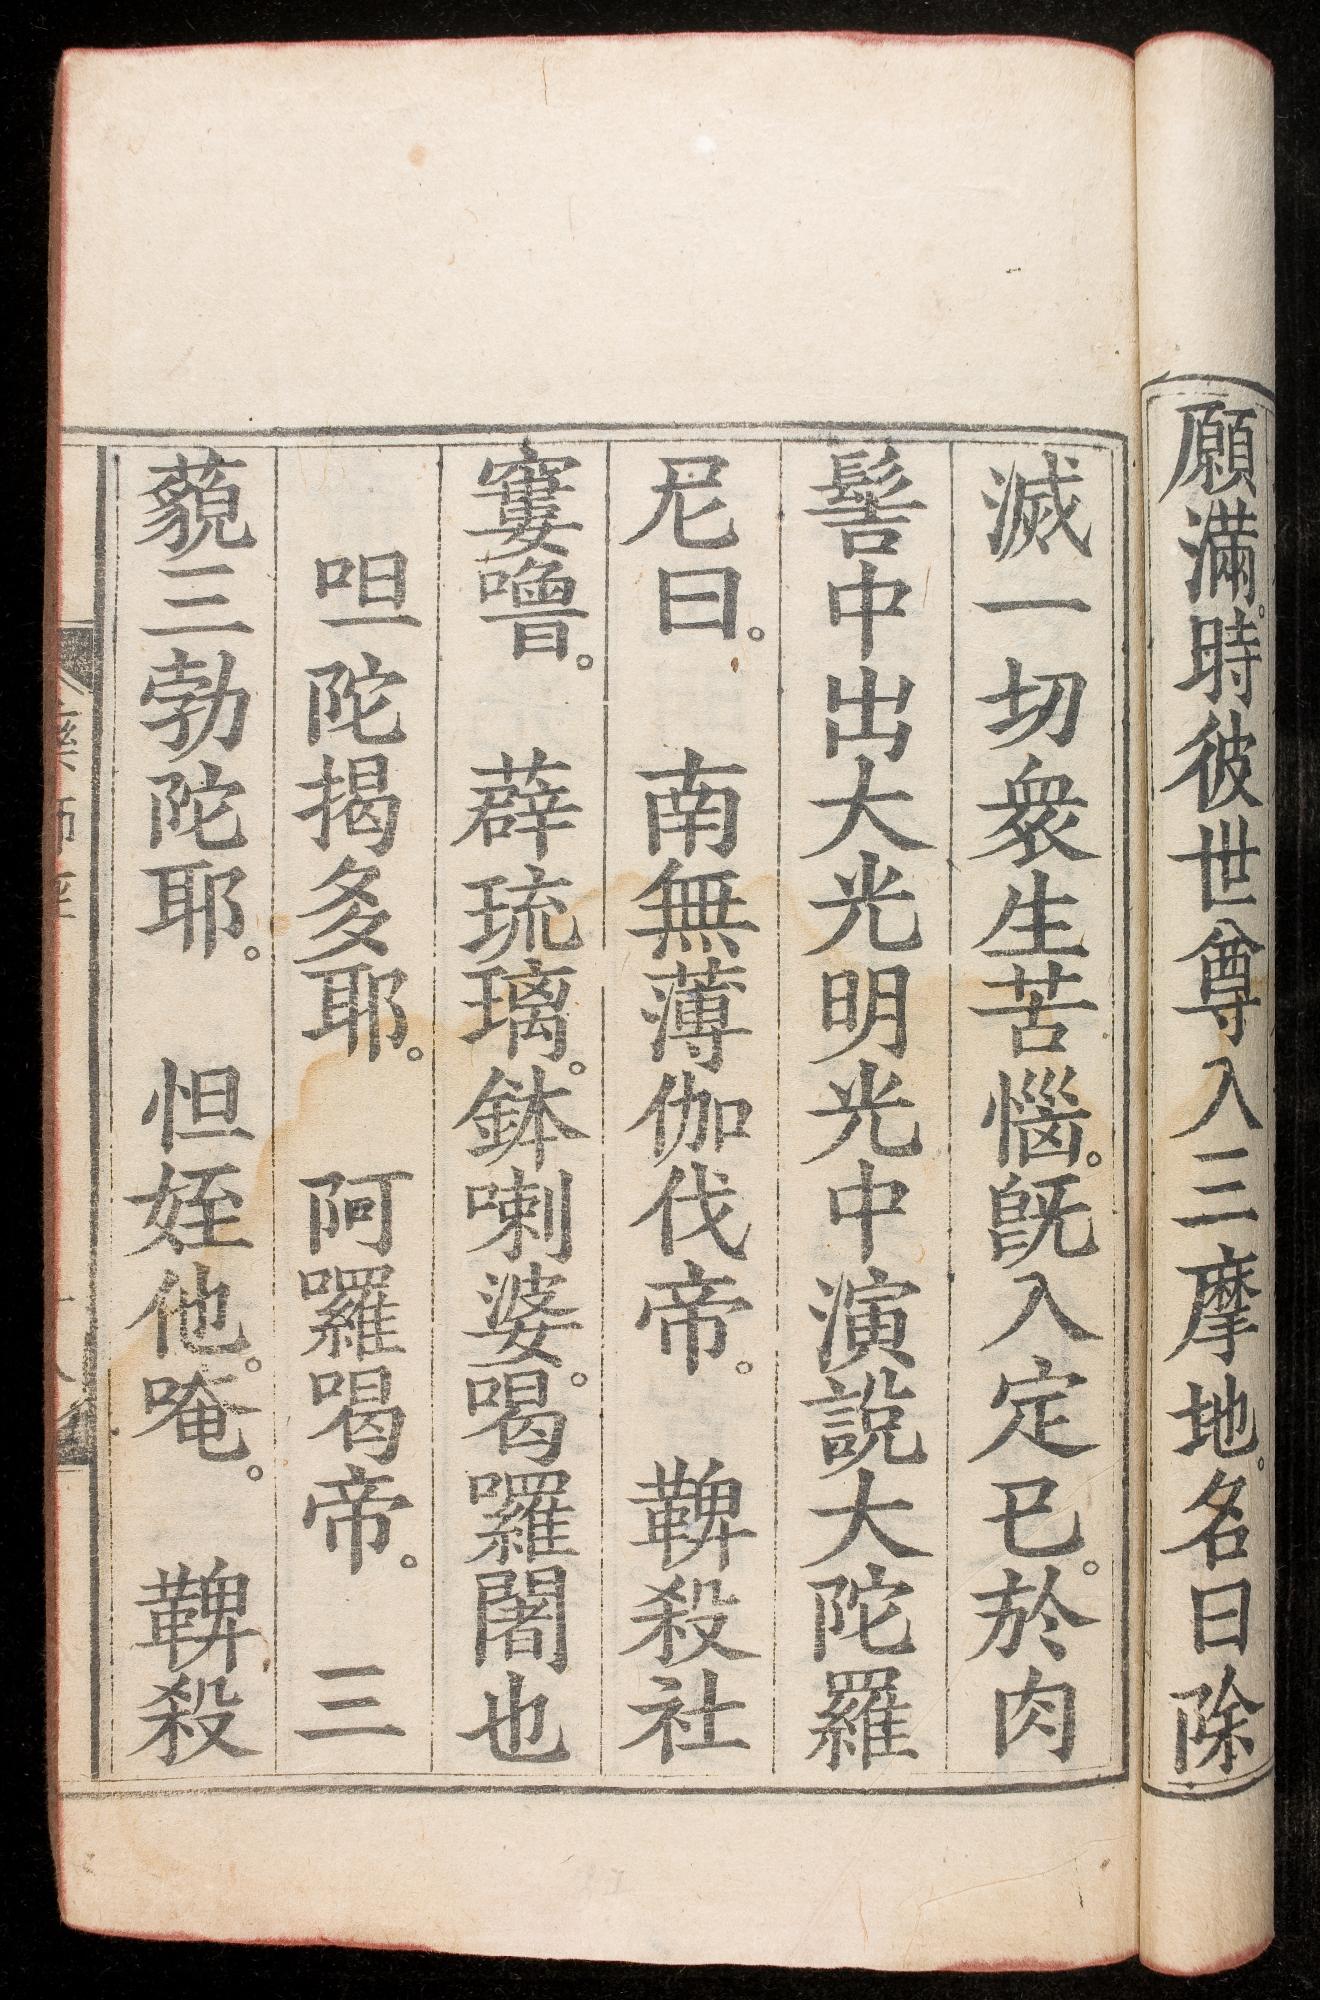 願滿。時彼世尊入三摩地。名曰除
滅一切衆生苦惱。旣入定已。於肉
髻中出大光明光中演說大陀羅
尼曰。　南無薄伽伐帝。　鞞殺社
窶嚕。　薜琉璃。鉢喇婆。喝囉闍也
　呾陀揭多耶。　阿囉喝帝。　三
藐三勃陀耶。　怛姪他。唵。　鞞殺